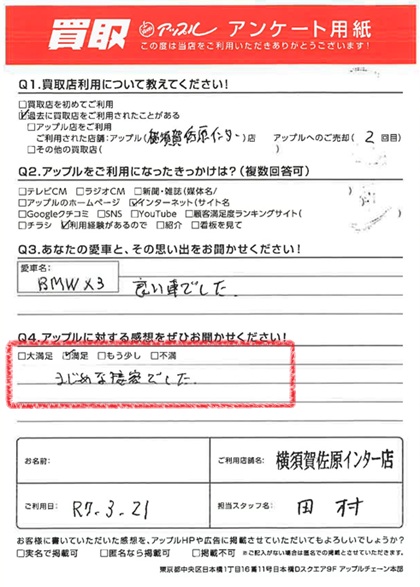 買取 アップル アンケート用紙
この度は当店をご利用いただきありがとうございます!
Q1.買取店利用について教えてください!
□買取店を初めてご利用
☑過去に買取店をご利用されたことがある
□アップル店をご利用
ご利用された店舗:アップル(横須賀佐原インター)店 アップルへのご売却(2回目)
□その他の買取店( )
Q2.アップルをご利用になったきっかけは?(複数回答可)
□テレビCM □ラジオCM □新聞・雑誌(媒体名/ )
□アップルのホームページ ☑インターネット(サイト名
□Googleクチコミ □SNS □YouTube □顧客満足度ランキングサイト( )
□チラシ ☑利用経験があるので □紹介 □看板を見て
Q3.あなたの愛車と、その思い出をお聞かせください!
愛車名
BMW X3 良い車でした.
Q4.アップルに対する感想をぜひお聞かせください!
□大満足 ☑満足 □もう少し □不満
まじめな接客でした.
お名前: ご利用店舗名: 横須賀佐原インター店
ご利用日: R7.3.21 担当スタッフ名: 田村
お客様に書いていただいた感想を、アップルHPや広告に掲載させていただいてもよろしいでしょうか?
□実名で掲載可 □匿名なら掲載可 □掲載不可 ※ご記入がない場合は匿名での掲載とさせていただきます。
東京都中央区日本橋1丁目16番11号日本橋Dスクエア9F アップルチェーン本部